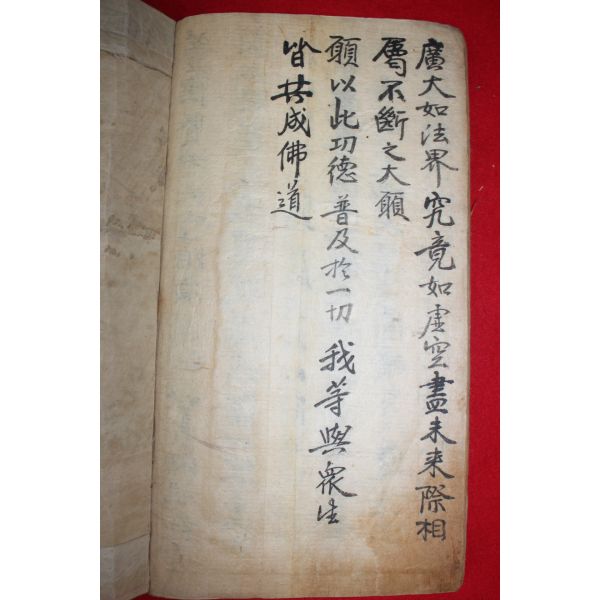 廣大如法界 究竟如虛空 盡未来際相
屬不斷之大願
願以此功德 普及於一切 我等與衆生
皆共成佛道